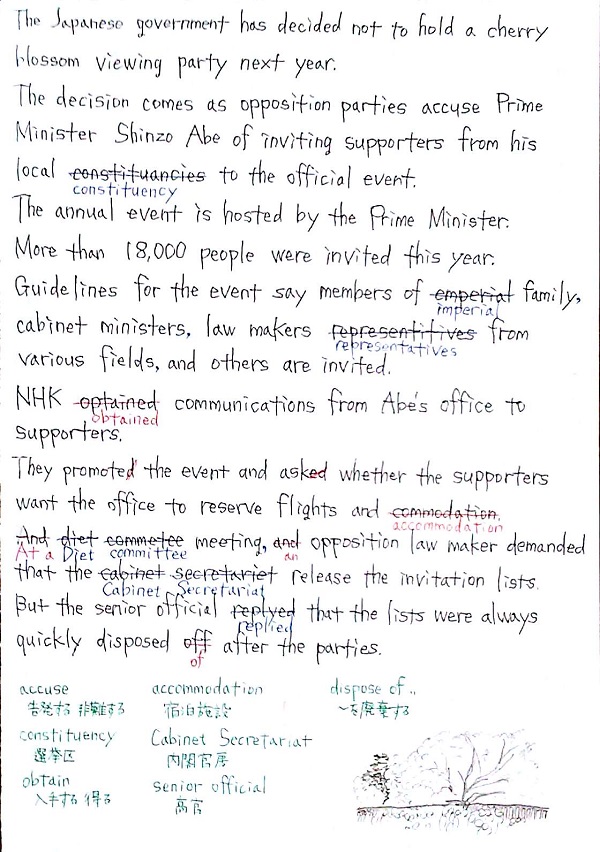 The Japanese government has decided not to hold a cherry
blossom viewing party next year.
The decision comes as opposition parties accuse Prime
Minister Shinzo Abe of inviting supporters from his
local constituancies to the official event.
constituency
The annual event is hosted by the Prime Minister.
More than 18,000 people were invited this year.
Guidelines for the event say members of emperial family,
imperial
cabinet ministers, law makers representitives from
representatives
various fields, and others are invited.
NHK optained communications from Abe's office to
obtained
supporters.
They promoted the event and asked whether the supporters
want the office to reserve flights and commodation.
accommodation
And diet commetee meeting, and opposition law maker demanded
At a Diet committee an
that the cabinet secretariet release the invitation lists.
Cabinet Secretariat
But the senior official replyed that the lists were always
replied
quickly disposed off after the parties.
of
accuse accommodation dispose of..
告発する 非難する 宿泊施設 ~を廃棄する
constituency Cabinet Secretariat
選挙区 内閣官房
obtain senior official
入手する 得る 高官